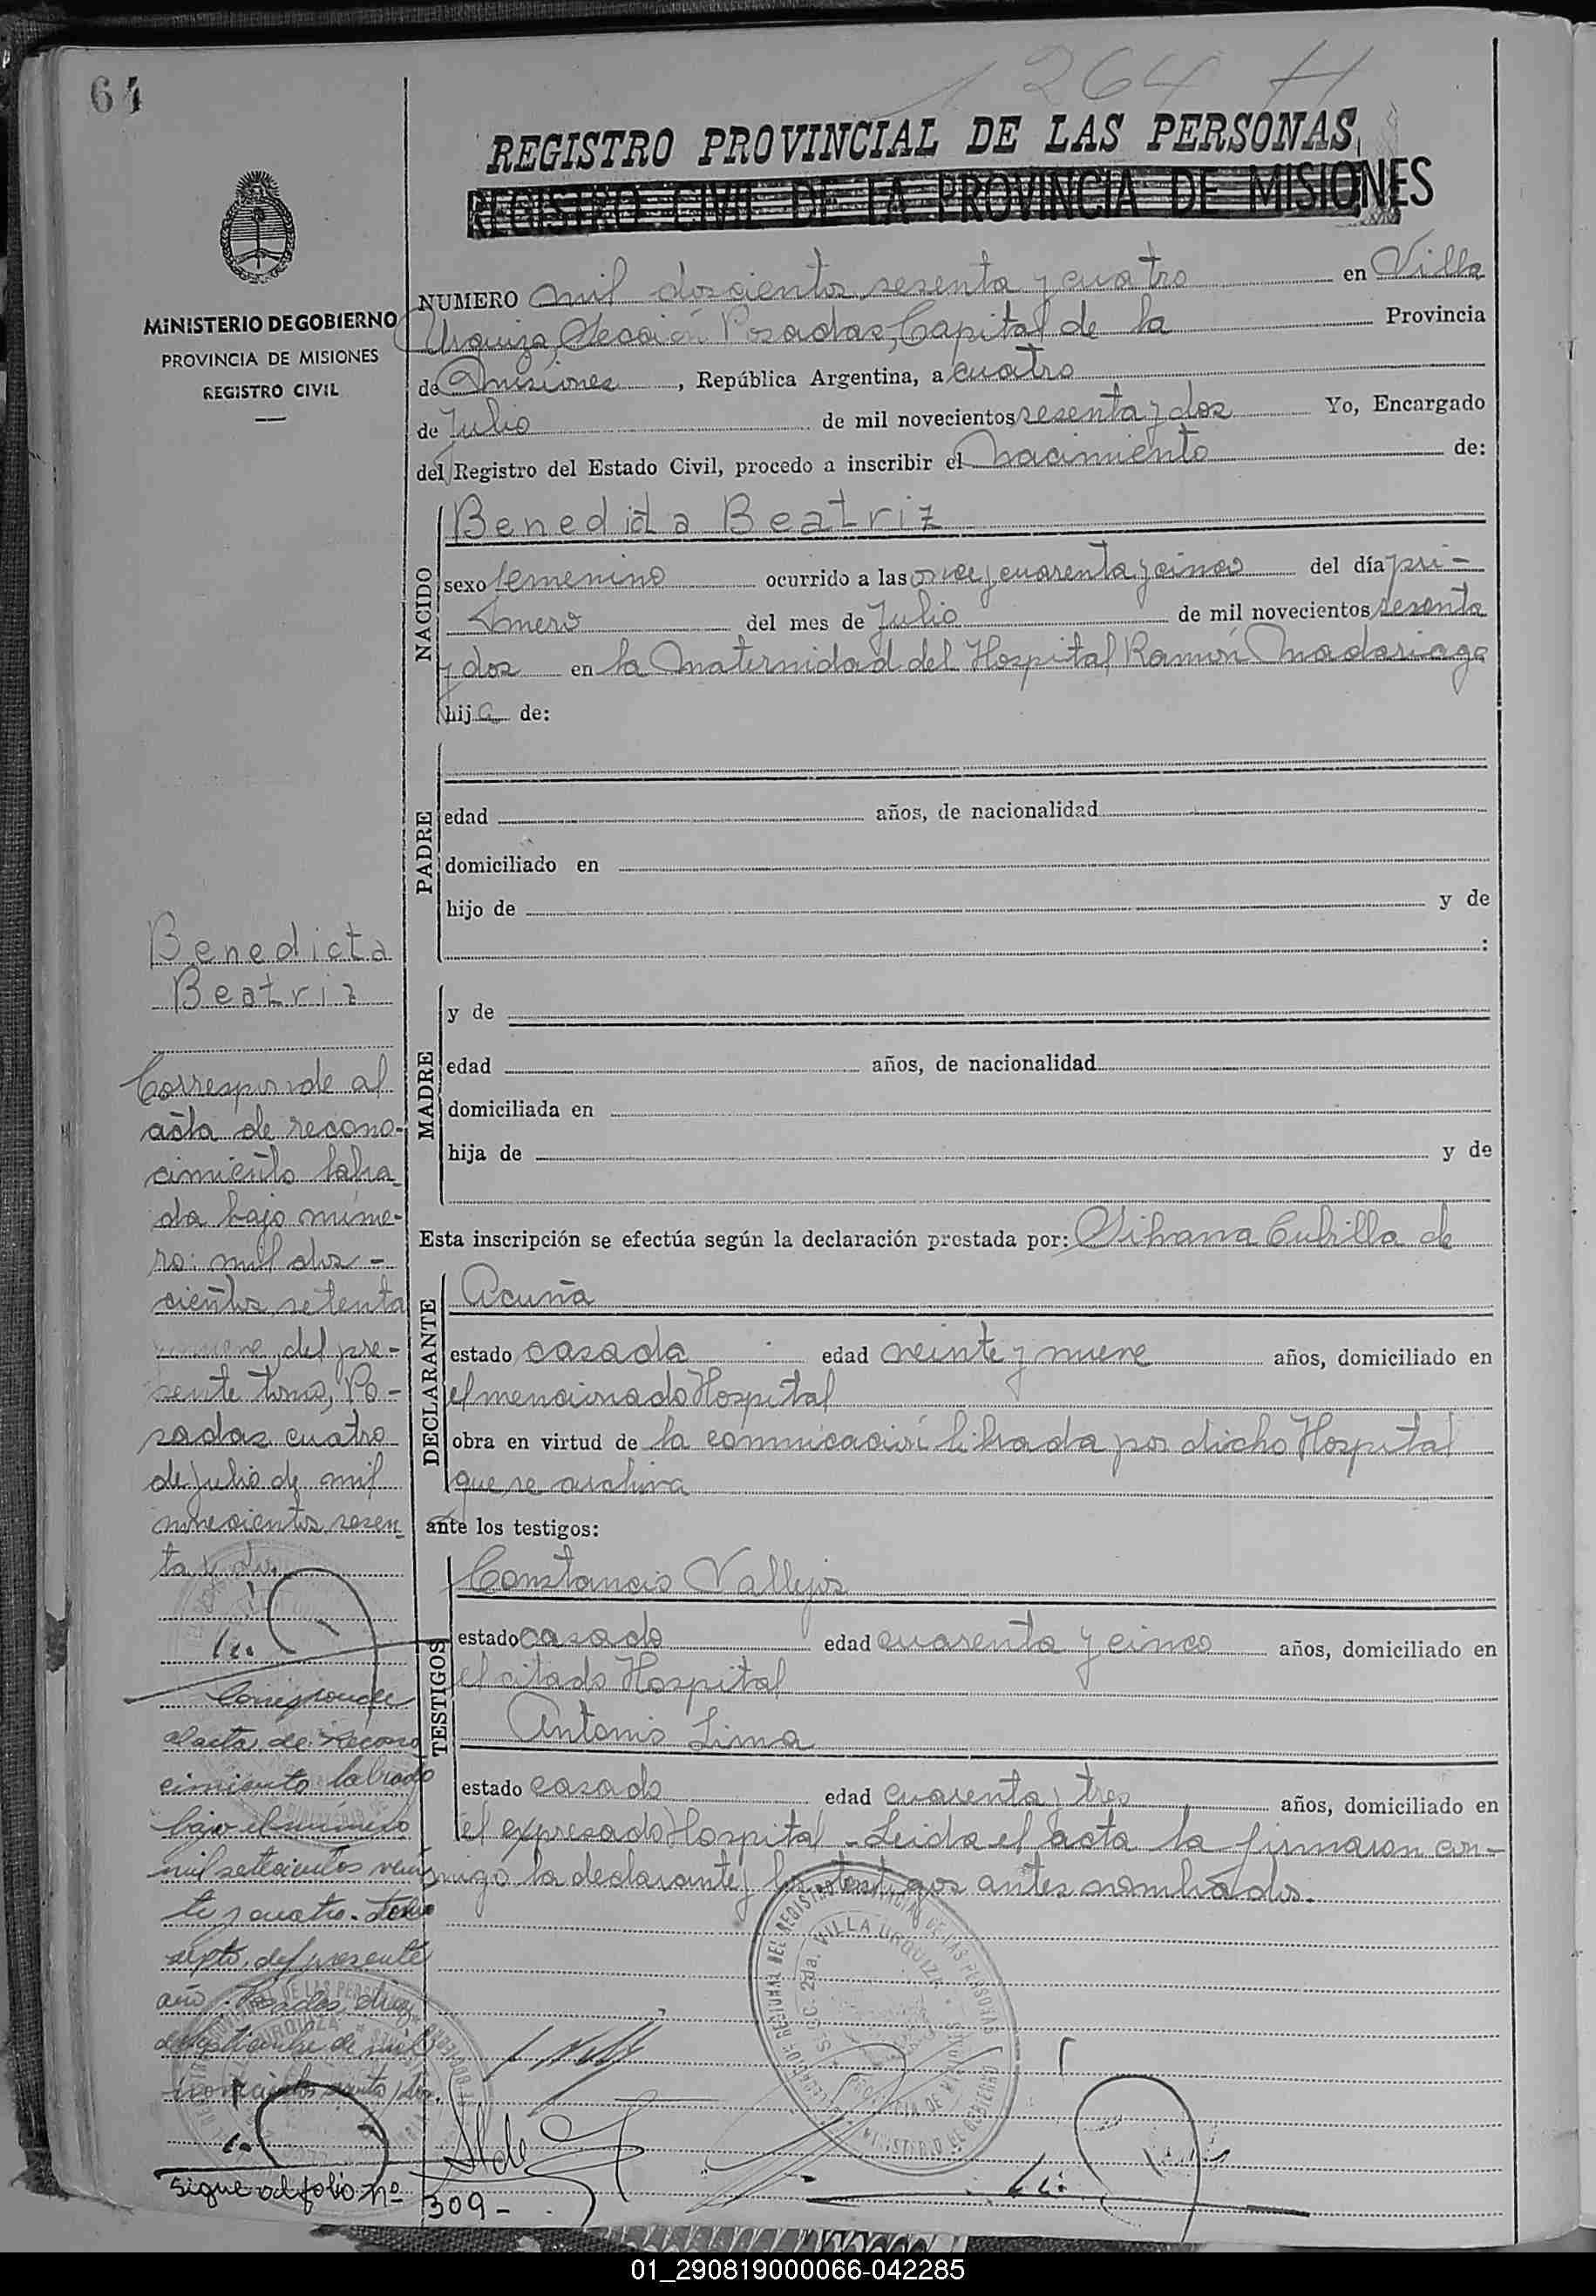 64
1264 H
REGISTRO PROVINCIAL DE LAS PERSONAS
REGISTRO CIVIL DE LA PROVINCIA DE MISIONES
MINISTERIO DE GOBIERNO
PROVINCIA DE MISIONES
REGISTRO CIVIL
NUMERO mil doscientos sesenta y cuatro en Villa
Urquiza, Sección Posadas, Capital de la Provincia
de Misiones, República Argentina, a cuatro
de Julio de mil novecientos sesenta y dos Yo, Encargado
del Registro del Estado Civil, procedo a inscribir el nacimiento de:
NACIDO
Benedicta Beatriz
sexo femenino ocurrido a las once y cuarenta y cinco del día pri-
mero del mes de Julio de mil novecientos sesenta
y dos en la Maternidad del Hospital Ramón Madariaga
hija de:
PADRE
edad años, de nacionalidad
domiciliado en
hijo de y de
:
MADRE
y de
edad años, de nacionalidad
domiciliada en
hija de y de
Esta inscripción se efectúa según la declaración prestada por: Silvana Cubilla de
DECLARANTE
Acuña
estado casada edad veinte y nueve años, domiciliado en
el mencionado Hospital
obra en virtud de la comunicación librada por dicho Hospital
que se archiva
ante los testigos:
TESTIGOS
Constancio Vallejos
estado casado edad cuarenta y cinco años, domiciliado en
el citado Hospital
Antonio Lima
estado casado edad cuarenta y tres años, domiciliado en
el expresado Hospital - Leida el acta la firmaron con-
migo la declarante y los testigos antes nombrados.
Benedicta
Beatriz
Corresponde al
acta de recono-
cimiento labra-
da bajo núme-
ro: mil dos-
cientos setenta
del pre-
sente tomo, Po-
sadas cuatro
de Julio de mil
novecientos sesen-
ta y dos.
Corresponde
al acta de Recono
cimiento labrado
bajo el número
mil setecientos vein
te y cuatro. Folio
septo. del presente
año. Posadas, diez
de septiembre de mil
novecientos sesenta y dos.
Sigue al folio nº 309-
2da. VILLA URQUIZA
01_290819000066-042285